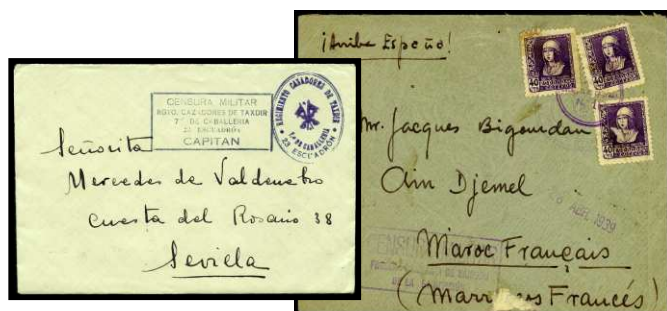 CENSURA MILITAR
RGTO. CAZADORES DE TAXDIR
7º DE CABALLERIA
23 ESCUADRÓN
CAPITAN
REGIMIENTO CAZADORES DE TAXDIR
7º DE CABALLERIA
23 ESCUADRÓN
Señorita
Mercedes de Valdenebro
cuesta del Rosario 38
Sevilla
¡Arriba España!
Mr. Jacques Bigourdan
Ain Djemel
ABR. 1939
Maroc Français
(Marruecos Francés)
CENSURA
DE LA